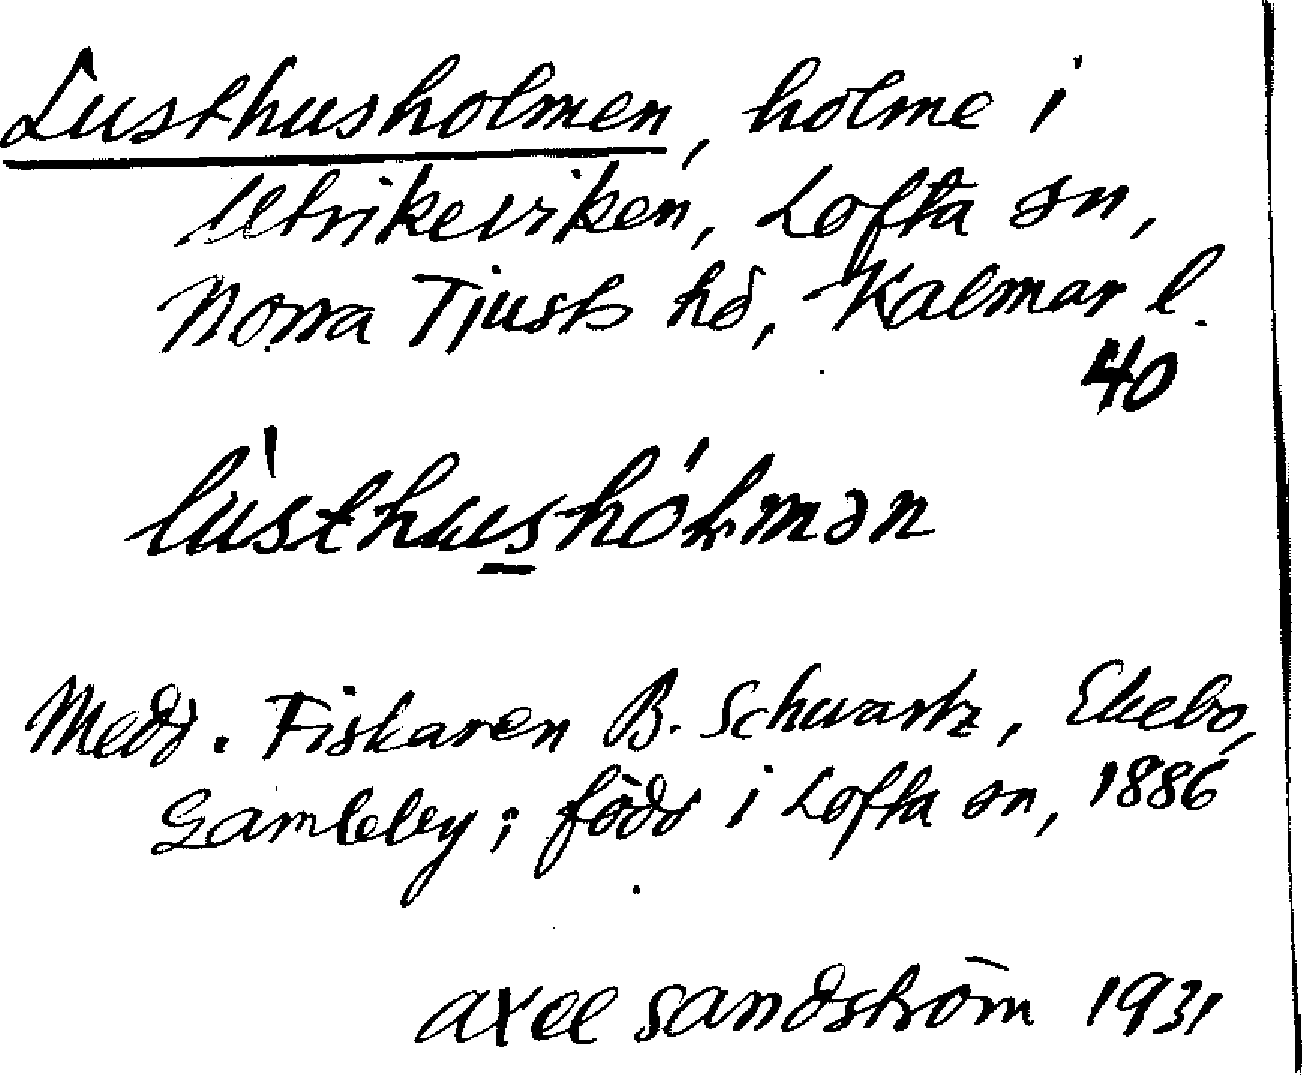 Lusthusholmen, holme i
Ulrikeviken, Lofta sn,
Norra Tjusts hd, Kalmar l.
40
lùsthushólmən
Medd. Fiskaren B. Schwartz, Ekebo,
Gamleby; född i Lofta sn, 1886
Axel Sandström 1931